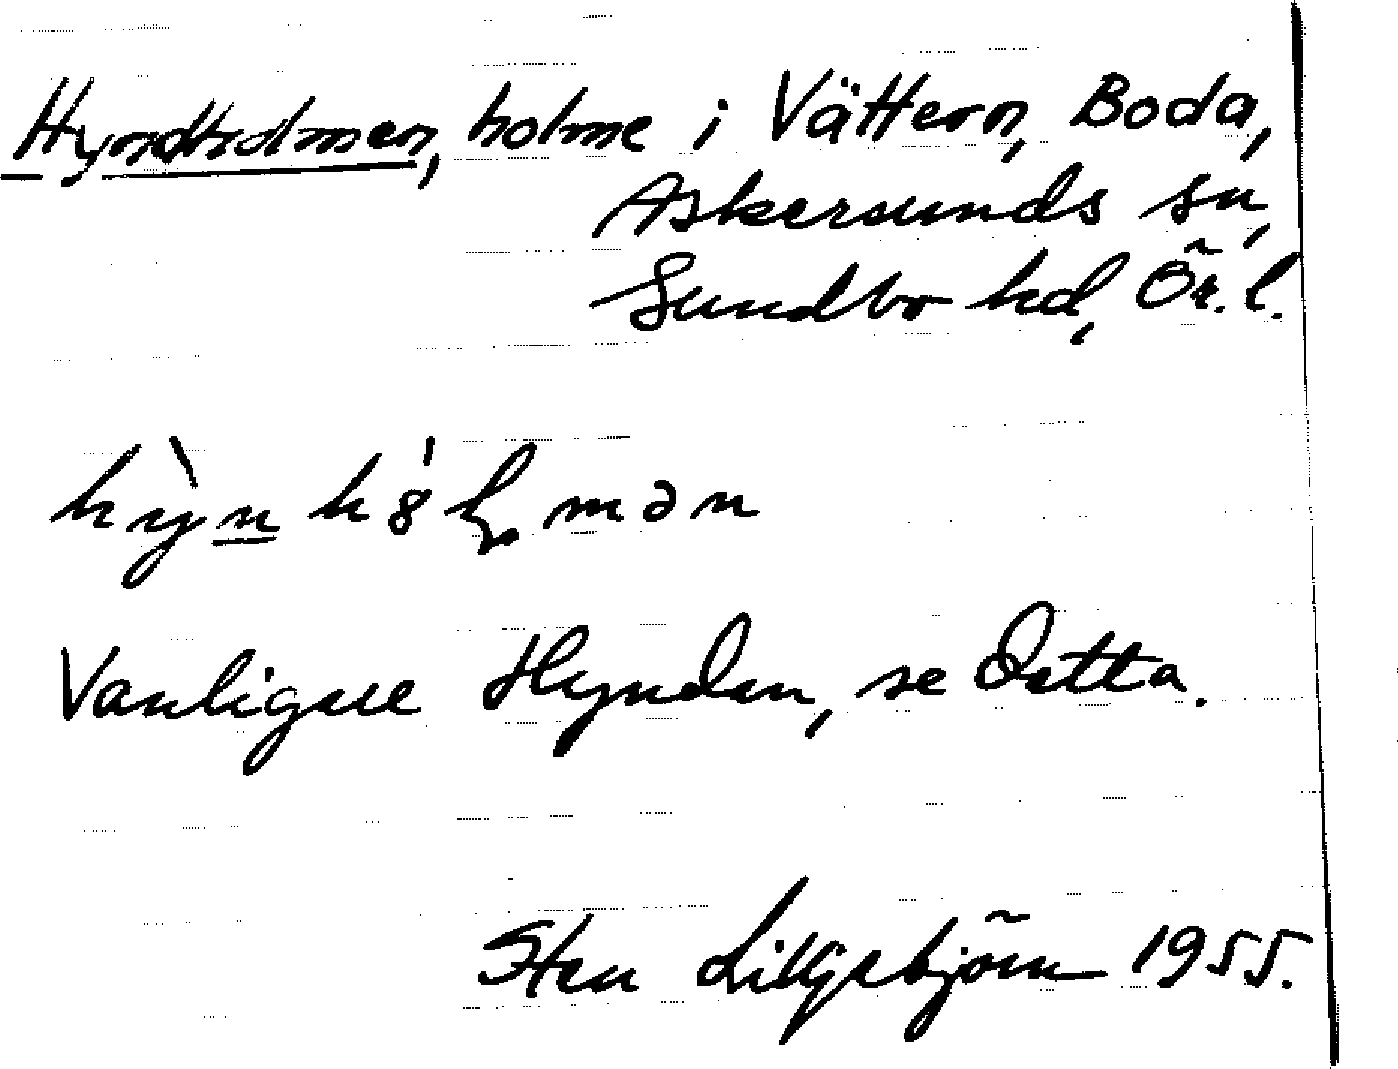 Hyndholmen, holme i Vättern, Boda,
Askersunds sn,
Sundbo hd, Ör. l.
hỳn hȣ́ɽmən
Vanligare Hynden, se detta.
Sten Liljebjörn 1955.